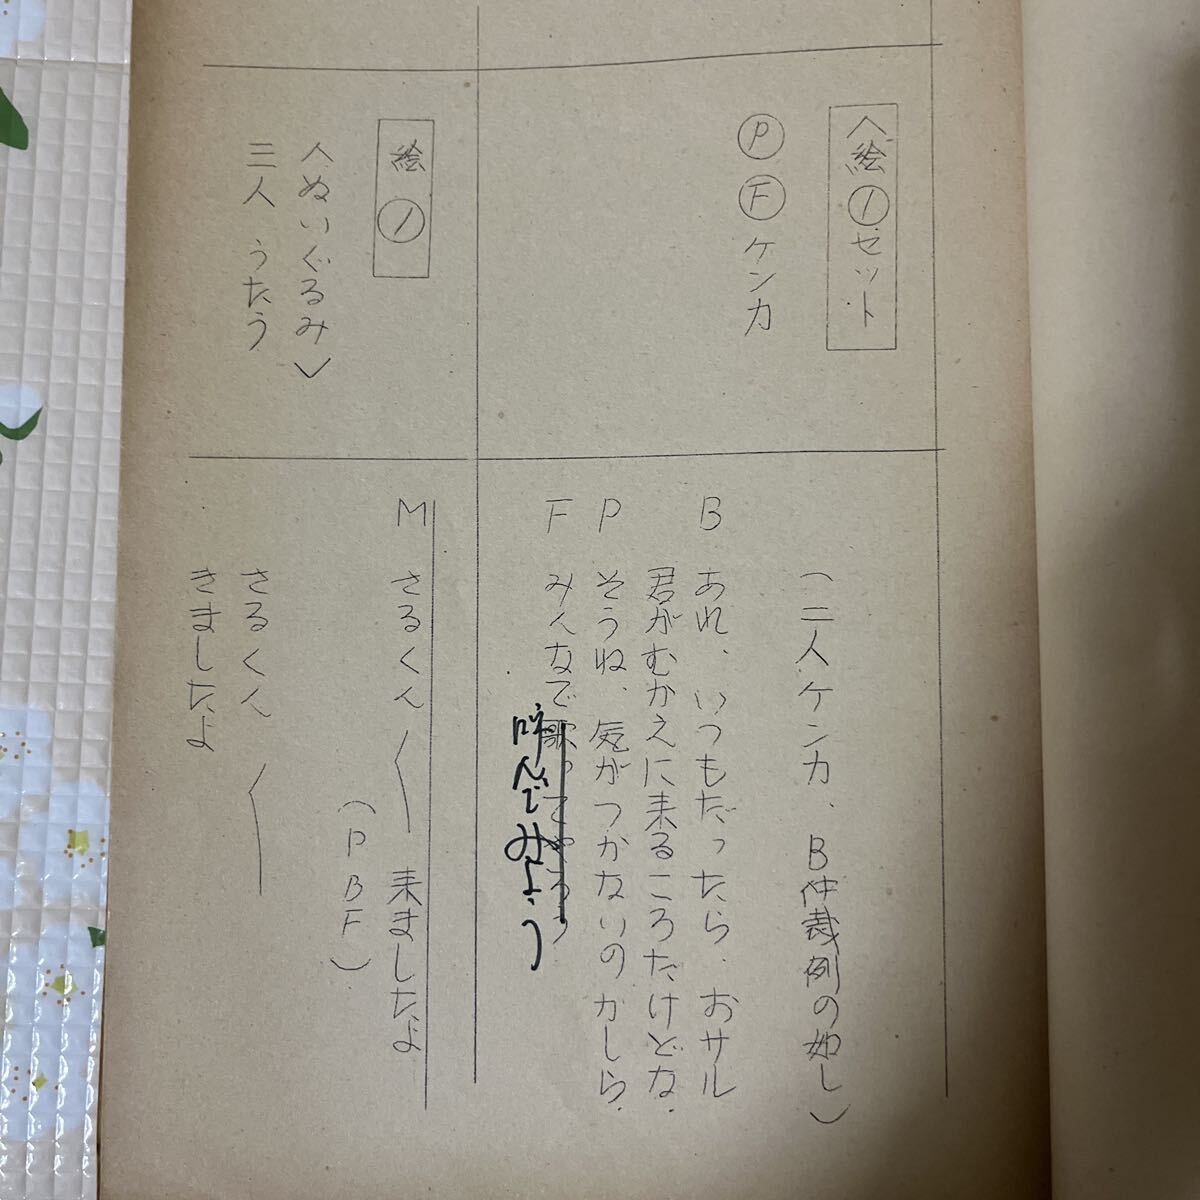 へ絵①セット
Ⓟ Ⓕ ケンカ
(二人ケンカ、B仲裁例の如し)
B あれ、いつもだったら、おサル
君がむかえに来るころだけどな.
P そうね、気がつかないのかしら.
F みんなで歌ってやろう
呼んでみよう
絵①
へぬいぐるみ〉
三人 うたう
M さるくん〱来ましたよ
(P B F)
さるくん〱
きましたよ